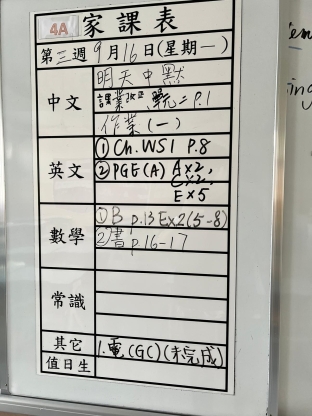 4A 家課表
第三週9月16日(星期一)
中文
明天中默
課業改正 單元二 P.1
作業(一)
英文
① Ch.WS1 P.8
② PGE(A) A×2,
C×2,
E×5
數學
①B p.13 Ex2(5-8)
②書p.16-17
常識
其它
1.電(GC)(未完成)
值日生